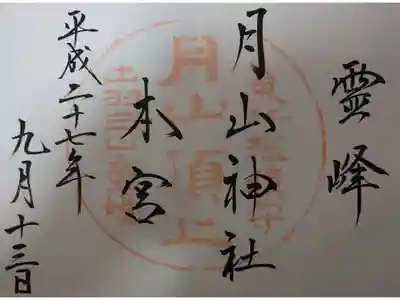 霊峰
月山神社
本宮
平成二十七年
九月十三日
月山頂上